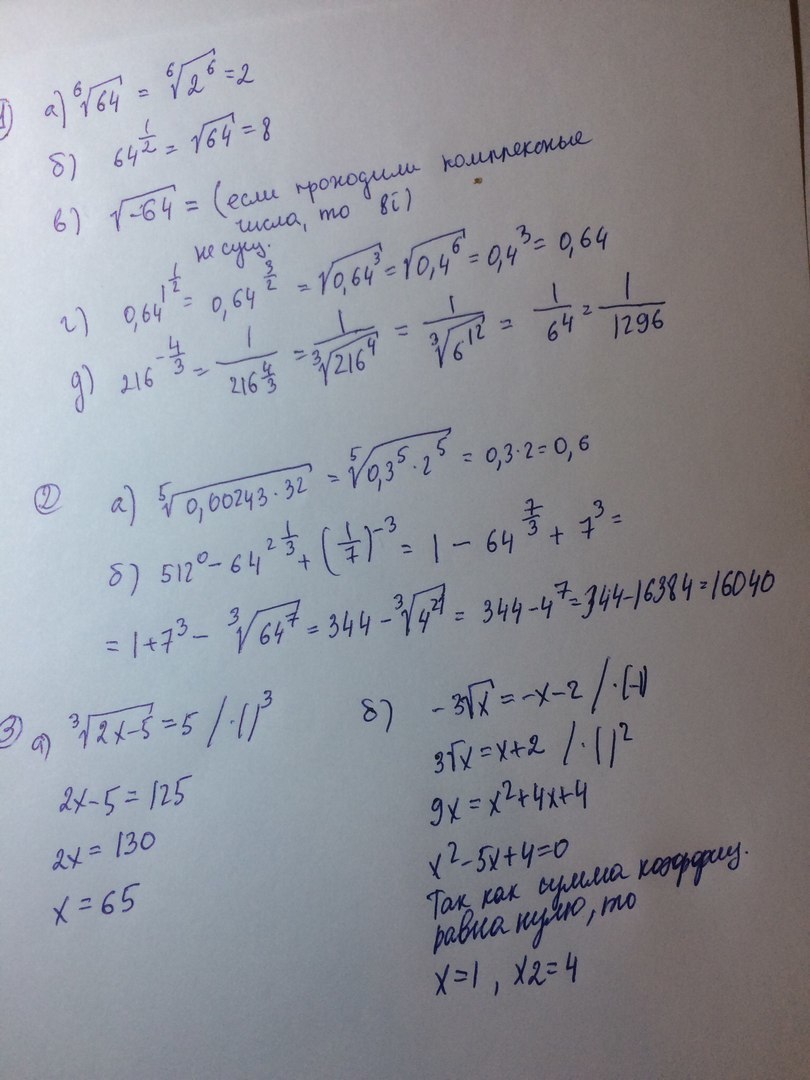 1) а) ⁶√64 = ⁶√2⁶ = 2
б) 64^(1/2) = √64 = 8
в) √-64 = (если проходили комплексные
числа, то 8i)
не сущ.
г) 0,64^(1 1/2) = 0,64^(3/2) = √0,64³ = √0,4⁶ = 0,4³ = 0,64
д) 216^(-4/3) = 1/216^(4/3) = 1/³√216⁴ = 1/³√6¹² = 1/6⁴ = 1/1296
2) а) ⁵√0,00243·32 = ⁵√0,3⁵·2⁵ = 0,3·2 = 0,6
б) 512⁰ - 64^(2 1/3) + (1/7)⁻³ = 1 - 64^(7/3) + 7³ =
= 1+7³ - ³√64⁷ = 344 - ³√4²¹ = 344 - 4⁷ = 344 - 16384 = 16040
3) а) ³√2x-5 = 5 /·()³
2x-5 = 125
2x = 130
x = 65
б) -3√x = -x-2 /·(-1)
3√x = x+2 /·()²
9x = x²+4x+4
x²-5x+4=0
Так как сумма коэффиц.
равна нулю, то
x=1, x2=4